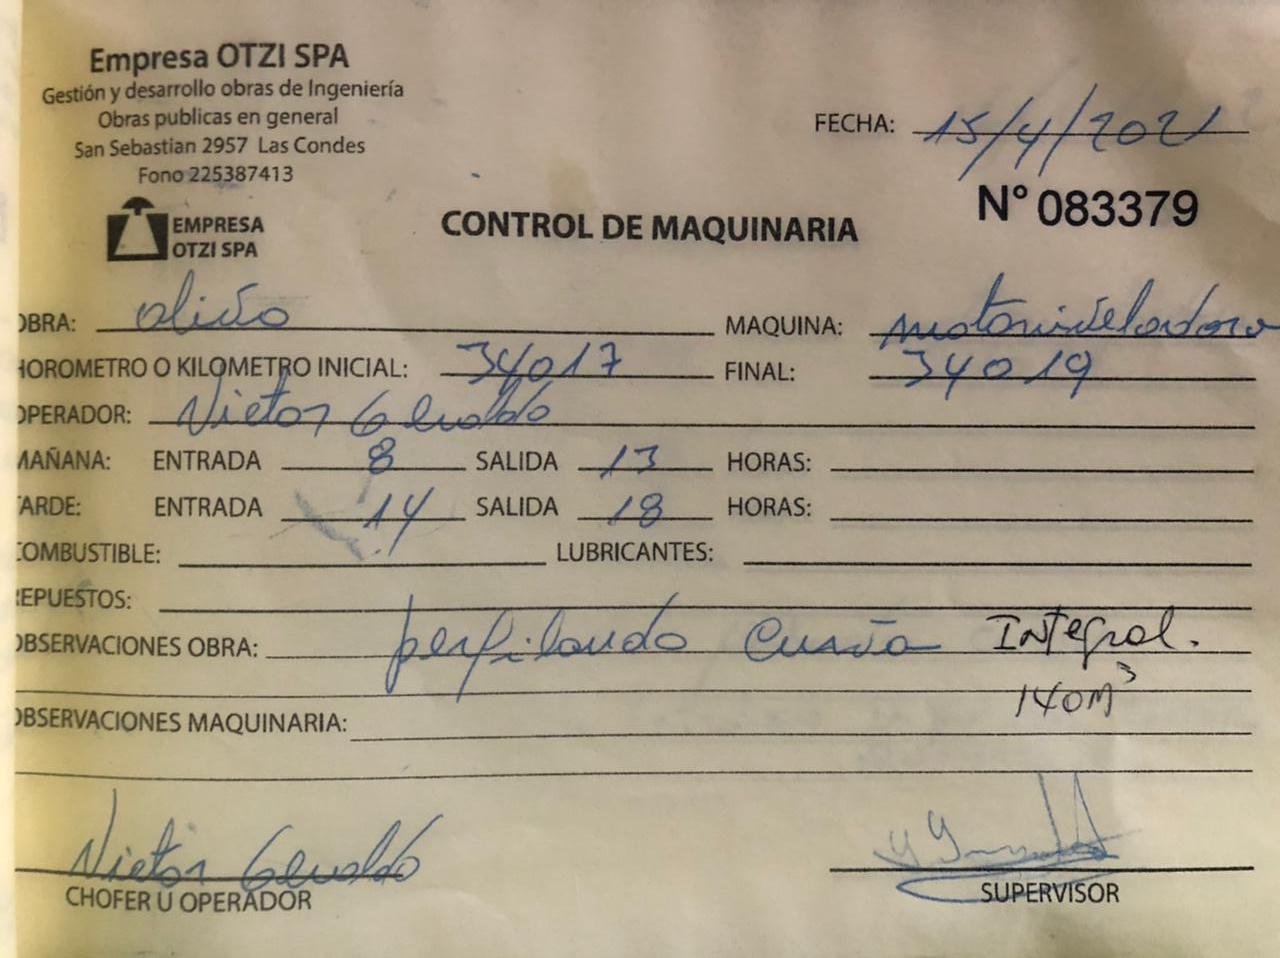 Empresa OTZI SPA
Gestión y desarrollo obras de Ingeniería
Obras publicas en general
San Sebastian 2957 Las Condes
Fono 225387413
FECHA: 15/4/2021
N° 083379
EMPRESA
OTZI SPA
CONTROL DE MAQUINARIA
OBRA:
MAQUINA: motoniveladora
HOROMETRO O KILOMETRO INICIAL: 34017 FINAL: 34019
OPERADOR:
MAÑANA: ENTRADA 8 SALIDA 13 HORAS:
TARDE: ENTRADA 14 SALIDA 18 HORAS:
COMBUSTIBLE: LUBRICANTES:
REPUESTOS:
OBSERVACIONES OBRA: perfilando Integral.
140 M³
OBSERVACIONES MAQUINARIA:
CHOFER U OPERADOR
SUPERVISOR